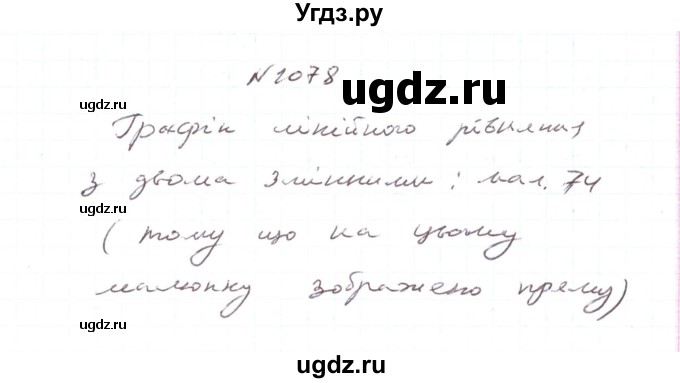 Угдз.ру
N 1078
ugdz.ru
ugdz.ru
Графік лінійного рівняння
з двома змінними: мал. 74
ugdz.ru
(тому що на цьому
малюнку зображено пряму)
ugdz.ru
ugdz.ru